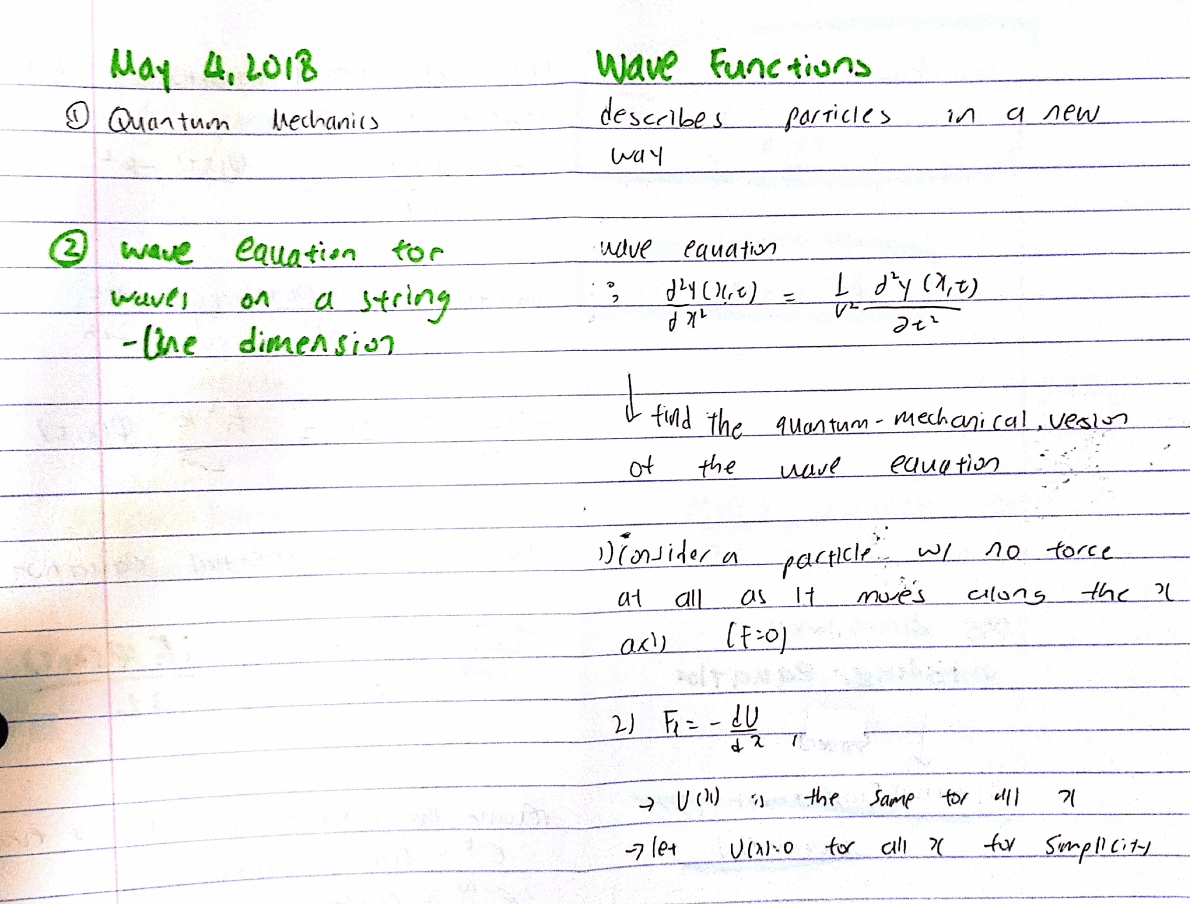 May 4, 2018
Wave Functions
① Quantum Mechanics
describes particles in a new
way
② wave equation for
waves on a string
- One dimension
wave equation
: ∂²y(x,t)/∂x² = 1/v² ∂²y(x,t)/∂t²
↓ find the quantum-mechanical, vesion
of the wave equation
1) Consider a particle w/ no force
at all as it moves along the x
axis (F=0)
2) Fx = - dU/dx
→ U(x) is the same for all x
→ let U(x)=0 for all x for simplicity